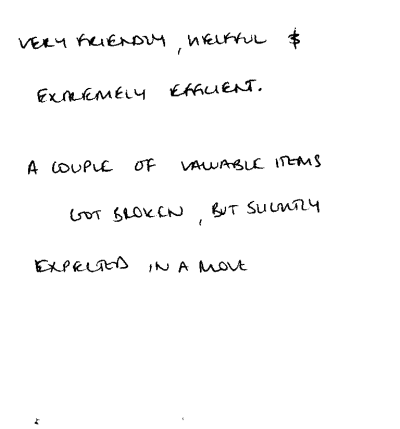 VERY FRIENDLY, HELPFUL &
EXTREMELY EFFICIENT.
A COUPLE OF VALUABLE ITEMS
GOT BROKEN, BUT SLIGHTLY
EXPECTED IN A MOVE